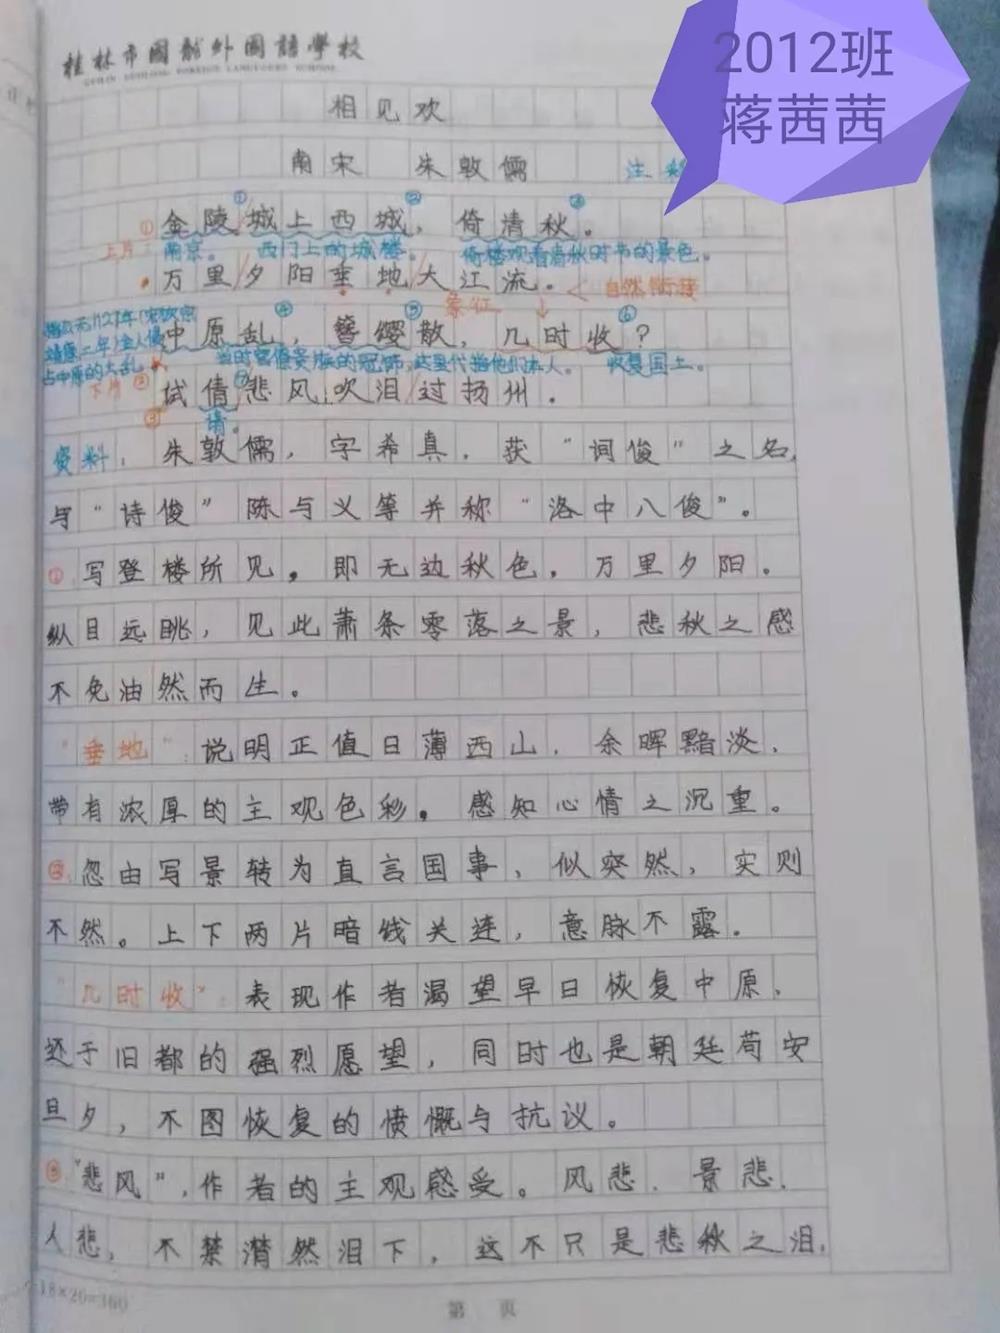 桂林市國龍外國語學校
GUILIN GUOLONG FOREIGN LANGUAGES SCHOOL
2012班
蒋茜茜
相见欢
南宋 朱敦儒 注
①金陵城上西城，倚清秋。
上片：南京。 西门上的城楼。 倚楼观看清秋时节的景色。
万里夕阳垂地大江流。 自然衔接
象征
中原乱，簪缨散，几时收？
占中原的大乱 当时官僚贵族的冠饰，这里代指他们本人。 收复国土。
下片 试倩悲风吹泪过扬州。
请。
资料：朱敦儒，字希真，获“词俊”之名，
与“诗俊”陈与义等并称“洛中八俊”。
①写登楼所见，即无边秋色，万里夕阳。
纵目远眺，见此萧条零落之景，悲秋之感
不免油然而生。
“垂地”：说明正值日薄西山，余晖黯淡，
带有浓厚的主观色彩。感知心情之沉重。
②忽由写景转为直言国事，似突然，实则
不然。上下两片暗线关连，意脉不露。
“几时收”：表现作者渴望早日恢复中原，
还于旧都的强烈愿望，同时也是朝廷苟安
旦夕，不图恢复的愤慨与抗议。
③“悲风”，作者的主观感受。风悲、景悲、
人悲，不禁潸然泪下，这不只是悲秋之泪，
18×20=360
第 页